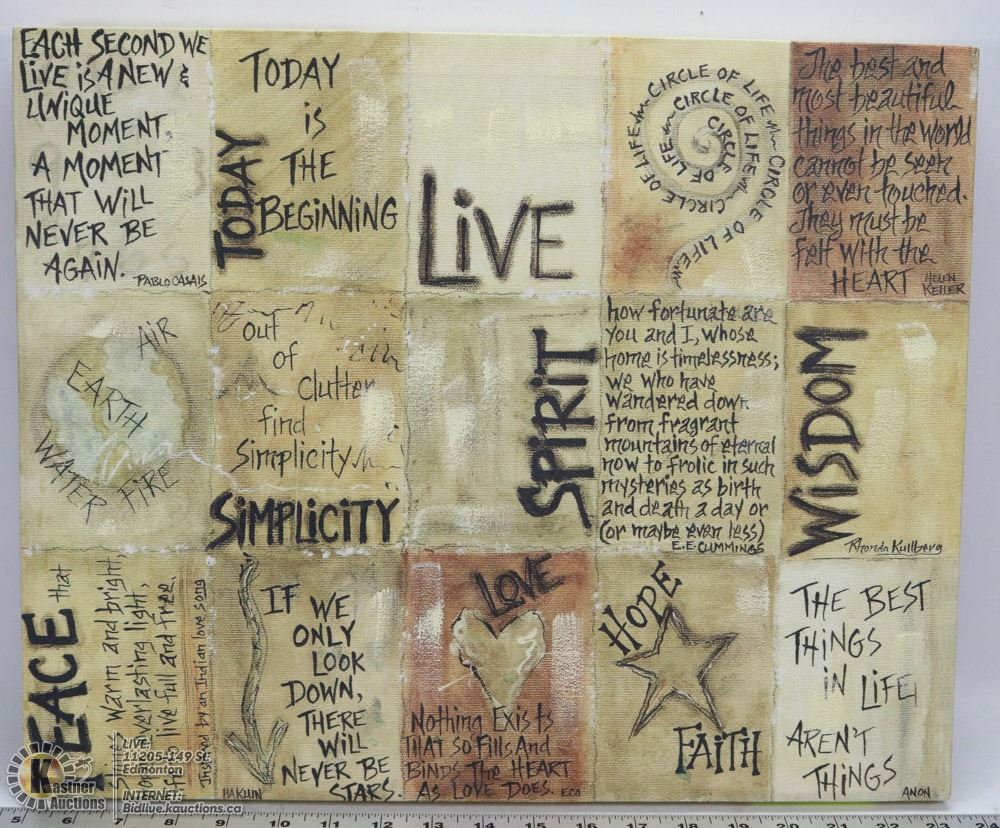 EACH SECOND WE
LIVE IS A NEW &
UNIQUE
MOMENT.
A MOMENT
THAT WILL
NEVER BE
AGAIN.
PABLO CASALS
TODAY
TODAY
IS
THE
BEGINNING
LIVE
CIRCLE OF LIFE CIRCLE OF LIFE CIRCLE OF LIFE CIRCLE OF LIFE CIRCLE OF LIFE
The best and
most beautiful
things in the world
cannot be seen
or even touched.
They must be
felt with the
HEART
HELEN
KELLER
AIR
EARTH
WATER
FIRE
Out
of
Clutter
find
Simplicity
SIMPLICITY
SPIRIT
how fortunate are
you and I, whose
home is timelessness;
we who have
wandered down
from fragrant
mountains of eternal
now to frolic in such
mysteries as birth
and death a day or
(or maybe even less)
E.E. CUMMINGS
WISDOM
Rhonda Kullberg
EACE
that
Warm and bright,
everlasting light,
live full and free.
Inspired by an Indian love song
IF WE
ONLY
LOOK
DOWN,
THERE
WILL
NEVER BE
STARS.
HAKUIN
LOVE
Nothing Exists
THAT so Fills And
BINDS The HEART
AS LOVE DOES. ECO
HOPE
FAITH
THE BEST
THINGS
IN LIFE
AREN'T
THINGS
ANON
K
Kastner
Auctions
LIVE:
11205-149 St
Edmonton
INTERNET:
Bidlive.kauctions.ca
5 6 7 8 9 10 11 12 13 14 15 16 17 18 19 20 21 22 23 24